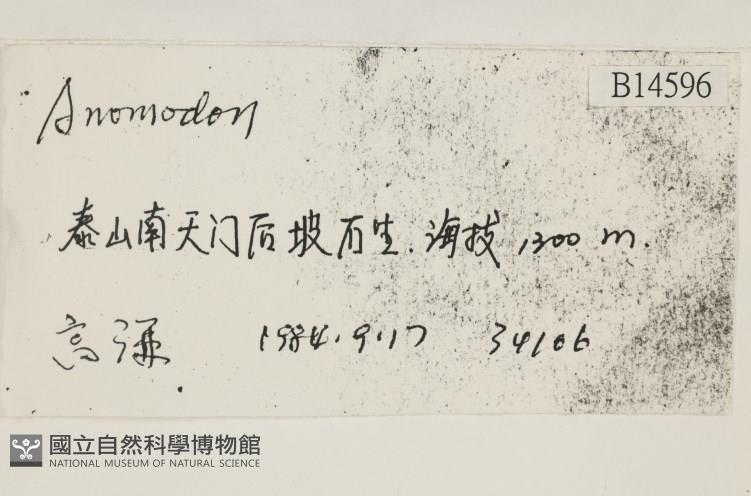 B14596
Anomodon
泰山南天门后坡石生.海拔1300 m.
高谦 1984.9.17 34106
國立自然科學博物館
NATIONAL MUSEUM OF NATURAL SCIENCE